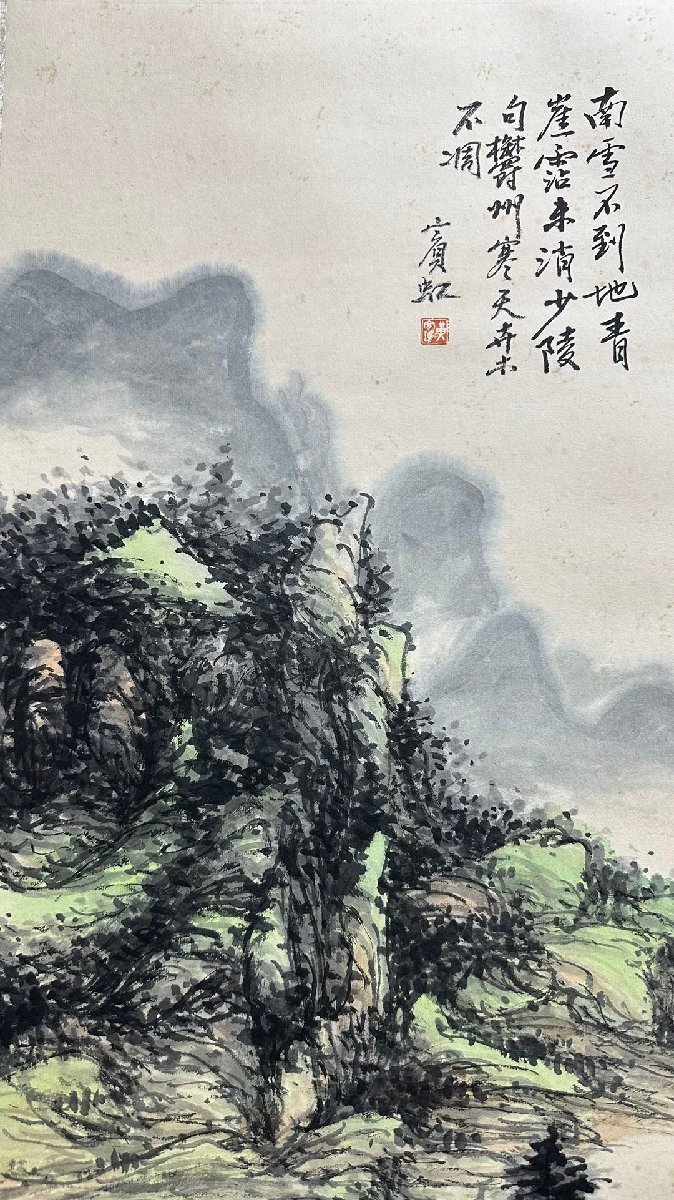 南雪不到地青
崖霑未消少陵
句欝州寒天卉木
不凋
賓虹